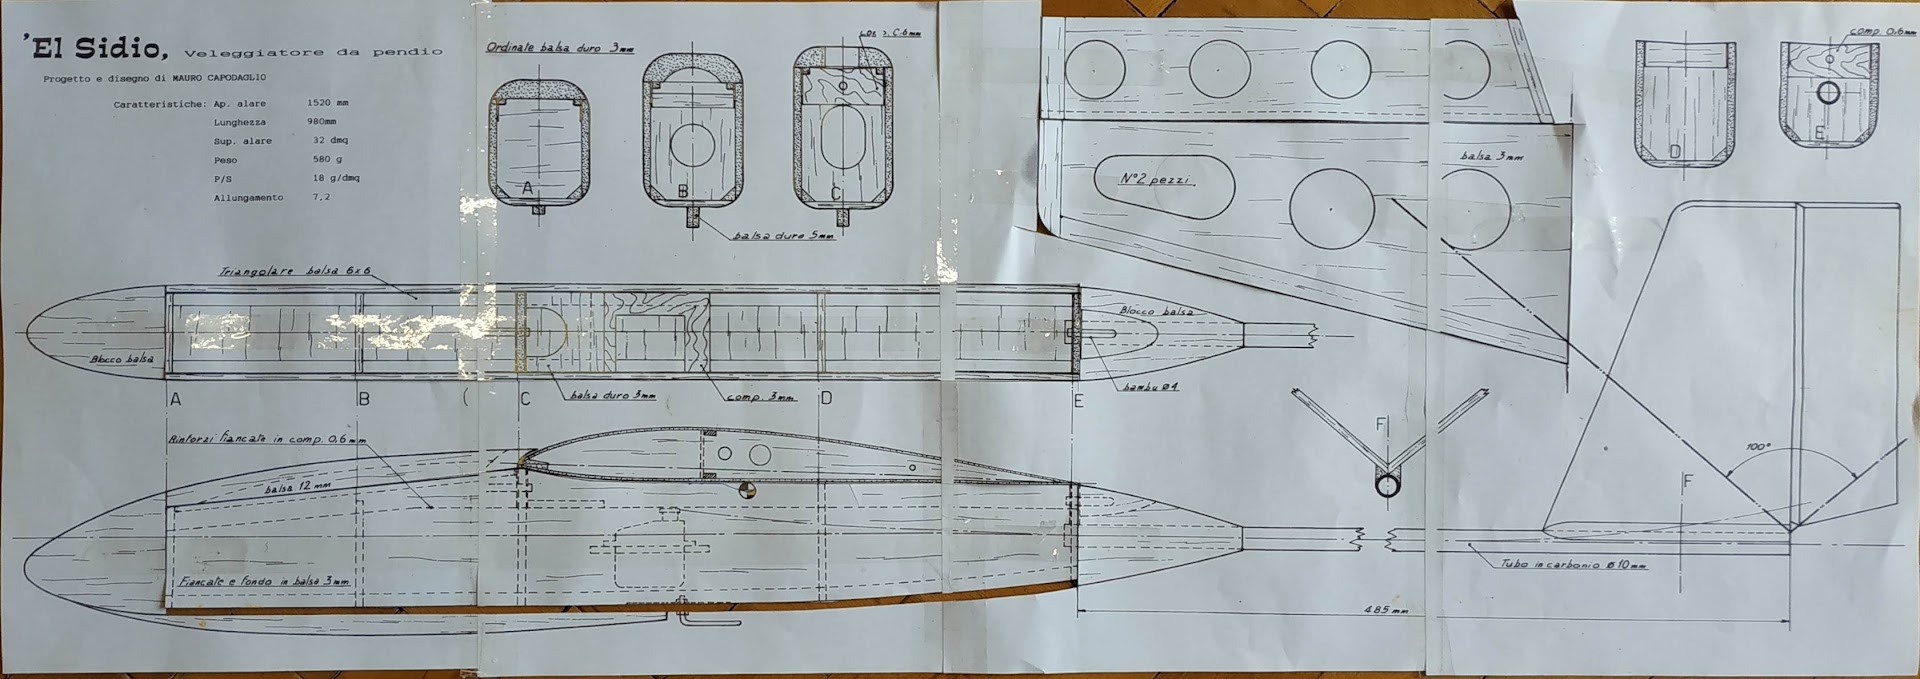 'El Sidio, Veleggiatore da pendio
Progetto e disegno di MAURO CAPODAGLIO
Caratteristiche: Ap. alare 1520 mm
Lunghezza 980mm
Sup. alare 32 dmq
Peso 580 g
P/S 18 g/dmq
Allungamento 7,2
Ordinale balsa duro 3mm
A
B
C
balsa duro 5mm
N°2 pezzi
balsa 3mm
D
E
comp. 0,6mm
Triangolare balsa 6x6
Blocco balsa
Blocco balsa
bambu ø4
A
B
C
balsa duro 3mm
comp. 3mm
D
E
Rinforzi fiancate in comp. 0,6mm
balsa 12mm
Fiancate e fondo in balsa 3mm
F
F
100°
Tubo in carbonio Ø10mm
485mm